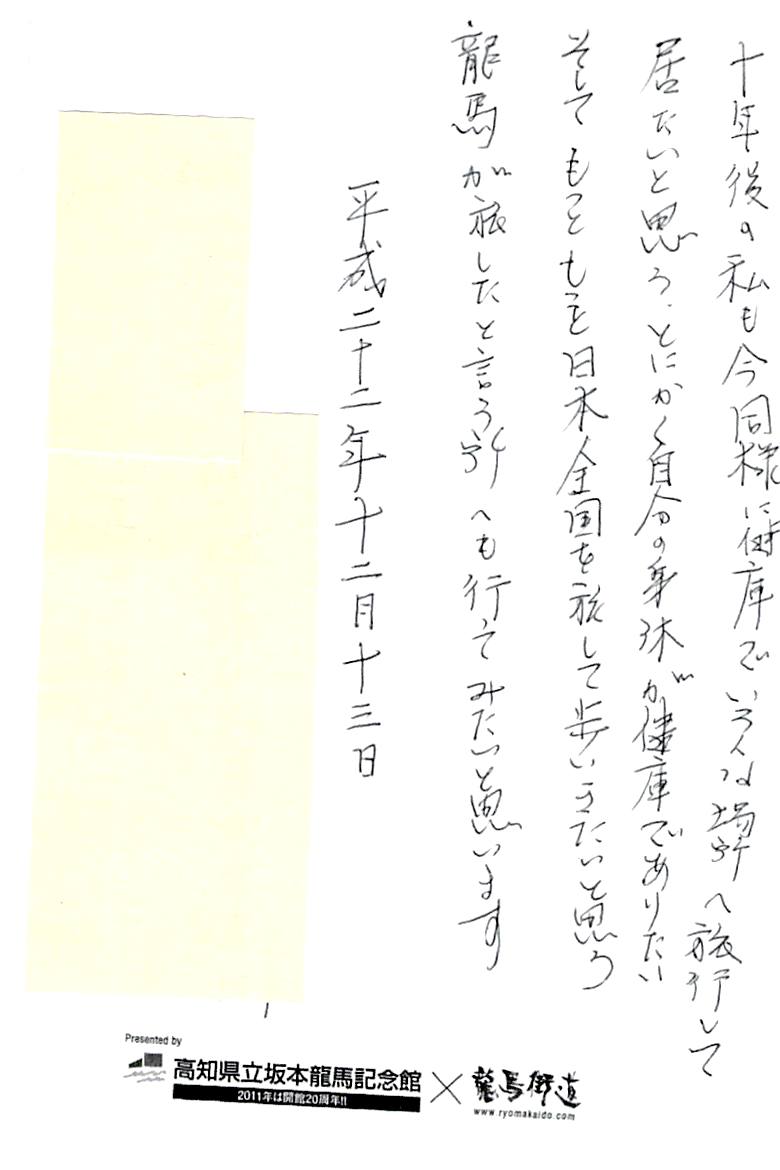 十年後の私も今同様に健康でいろんな場所へ旅行して
居たいと思う、とにかく自分の身体が健康でありたい
そしてもっともっと日本全国を旅して歩いきたいと思う
龍馬が旅したと言う所へも行ってみたいと思います
平成二十二年十二月十三日
Presented by
高知県立坂本龍馬記念館×龍馬街道
2011年は開館20周年!!
www.ryomakaido.com